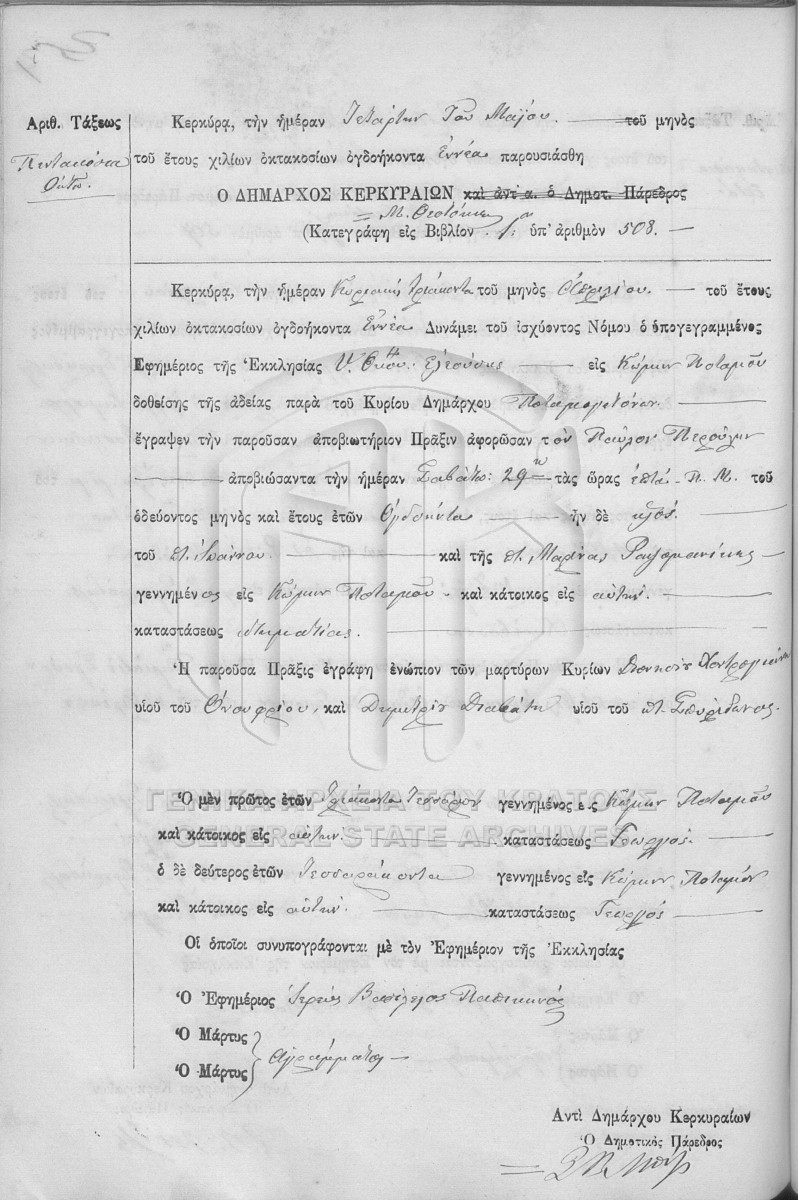 Ἀριθ. Τάξεως
Πεντακόσια
Ὀκτώ.
Κερκύρᾳ, τὴν ἡμέραν Τετάρτην τοῦ Μαΐου. — τοῦ μηνὸς
τοῦ ἔτους χιλίων ὀκτακοσίων ὀγδοήκοντα ἐννέα παρουσιάσθη
Ὁ ΔΗΜΑΡΧΟΣ ΚΕΡΚΥΡΑΙΩΝ καὶ ἀντ' α. ὁ Δημοτ. Πάρεδρος
Μ. Θεοτόκης
(Κατεγράφη εἰς Βιβλίον ὑπ' ἀριθμὸν 508. —
Κερκύρᾳ, τὴν ἡμέραν Κυριακὴ τριάκοντα τοῦ μηνὸς Ἀπριλίου. — τοῦ ἔτους
χιλίων ὀκτακοσίων ὀγδοήκοντα ἐννέα Δυνάμει τοῦ ἰσχύοντος Νόμου ὁ ὑπογεγραμμένος
Ἐφημέριος τῆς Ἐκκλησίας Ἐλεούσης — εἰς Κώμην Ποταμοῦ
δοθείσης τῆς ἀδείας παρὰ τοῦ Κυρίου Δημάρχου
ἔγραψεν τὴν παροῦσαν ἀποβιωτήριον Πρᾶξιν ἀφορῶσαν τὸν Παῦλον Περούλην
— ἀποβιώσαντα τὴν ἡμέραν Σαβάτο: 29ην τὰς ὥρας ἑπτά - Π. Μ. τοῦ
ὁδεύοντος μηνὸς καὶ ἔτους ἐτῶν Ὀγδοήντα — ἦν δὲ υἱός.
τοῦ πτ. Ἰωάννου — καὶ τῆς πτ. Μαρίνας —
γεννημένος εἰς Κώμην Ποταμοῦ - καὶ κάτοικος εἰς αὐτήν. —
καταστάσεως κτηματίας. —
Ἡ παροῦσα Πρᾶξις ἐγράφη ἐνώπιον τῶν μαρτύρων Κυρίων Διονησίου
υἱοῦ τοῦ Ὀνουφρίου, καὶ Δημητρίου Διαβάτη υἱοῦ τοῦ πτ. Σπυρίδωνος.
ΓΕΝΙΚΑ ΑΡΧΕΙΑ ΤΟΥ ΚΡΑΤΟΥΣ
GENERAL STATE ARCHIVES
Ὁ μὲν πρῶτος ἐτῶν τριάκοντα τεσσάρων γεννημένος εἰς Κώμην Ποταμοῦ
καὶ κάτοικος εἰς αὐτήν. — καταστάσεως Γεωργός. —
ὁ δὲ δεύτερος ἐτῶν Τεσσαράκοντα γεννημένος εἰς Κώμην Ποταμοῦ
καὶ κάτοικος εἰς αὐτήν. — καταστάσεως Γεωργός —
Οἱ ὁποῖοι συνυπογράφονται μὲ τὸν Ἐφημέριον τῆς Ἐκκλησίας
Ὁ Ἐφημέριος Ἱερεὺς Βασίλειος
Ὁ Μάρτυς
Ὁ Μάρτυς
Ἀγράμματοι —
Ἀντὶ Δημάρχου Κερκυραίων
Ὁ Δημοτικὸς Πάρεδρος